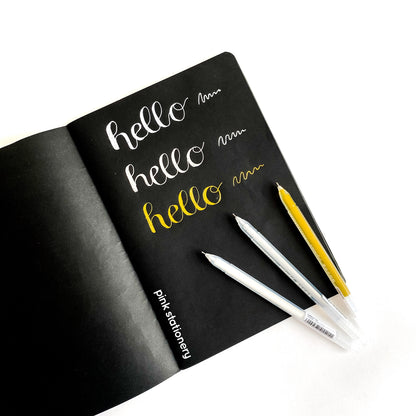 hello
hello
hello
pink stationery